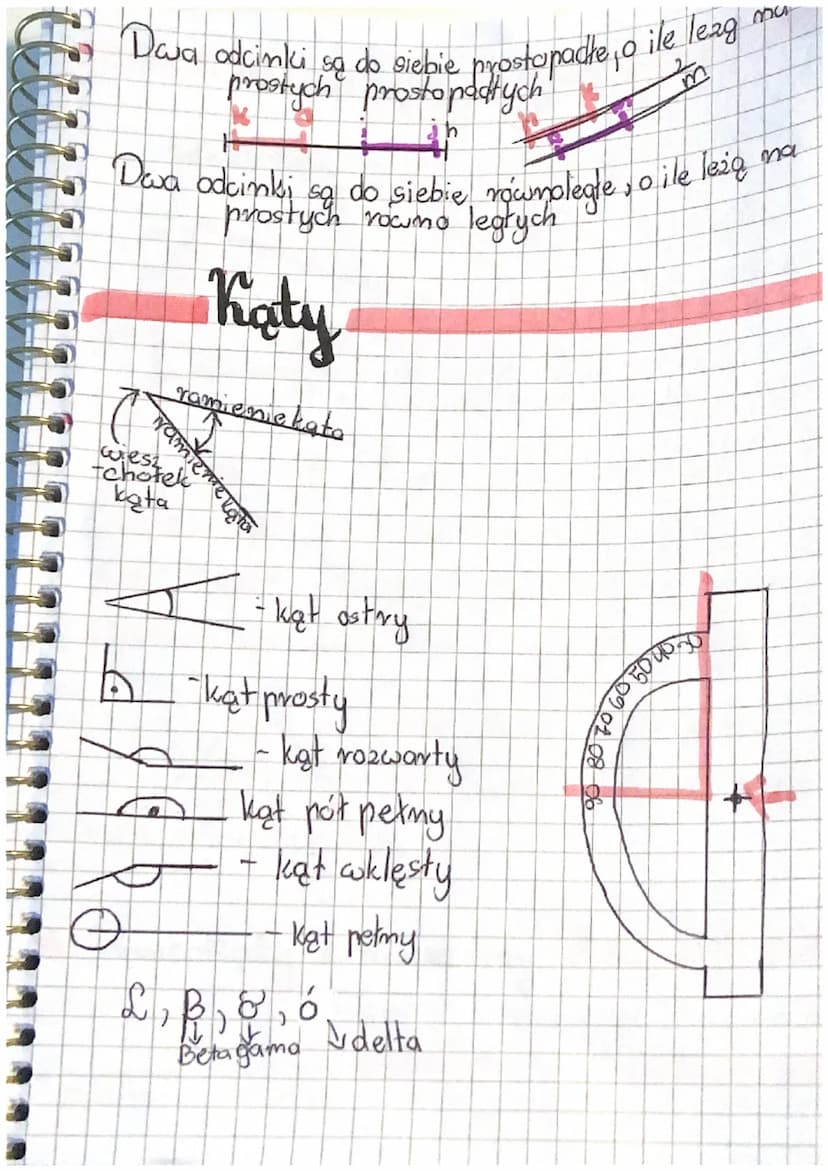 Dwa odcinki są do siebie prostopadłe, o ile leżą na
prostych prostopadłych
k
h
m
Dwa odcinki są do siebie równolegle, o ile leżą na
prostych równo ległych
Kąty
ramienie kąta
ramienie kąta
wiesz
-chołek
kąta
- kąt ostry
- kąt prosty
- kąt rozwarty
kąt pół pełny
- kąt wklęsły
- kąt pełny
90 80 70 60 50 40 30
L, β, γ, ó
Beta gama delta